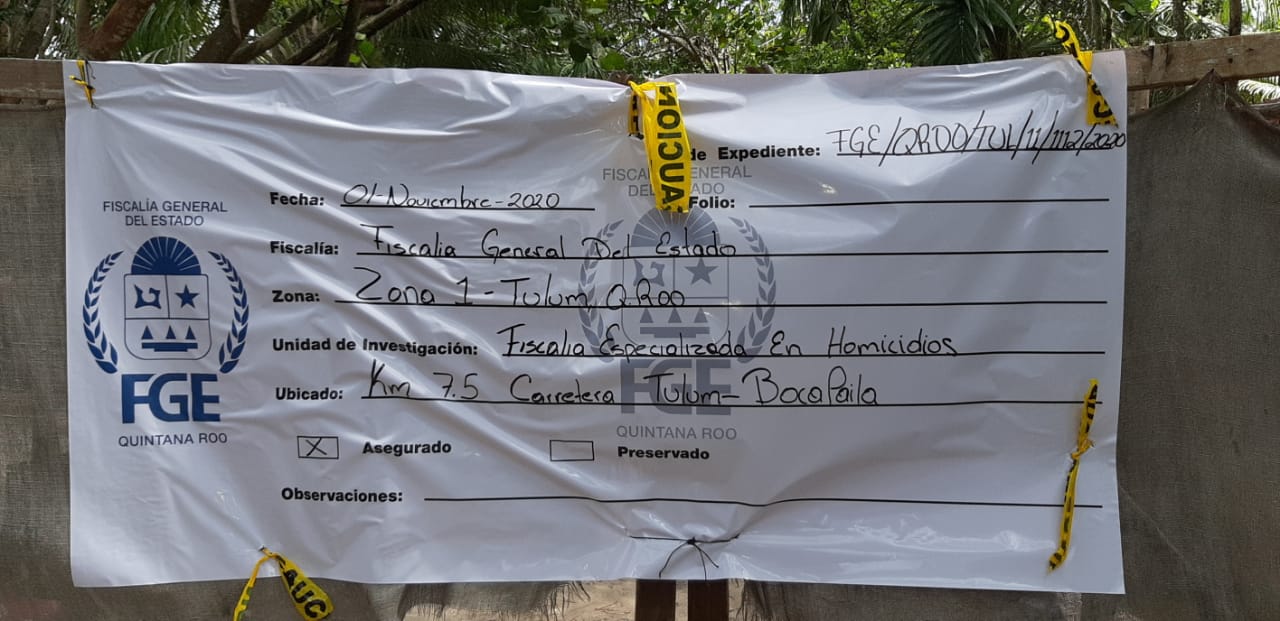 FISCALÍA GENERAL
DEL ESTADO
FGE
QUINTANA ROO
de Expediente: FGE/QROO/TUL/11/1112/2020
Fecha: 01-Noviembre-2020
Folio:
Fiscalía: Fiscalia General Del Estado
Zona: Zona 1 - Tulum, Q.Roo
Unidad de Investigación: Fiscalia Especializada En Homicidios
Ubicado: Km 7.5 Carretera Tulum - Boca Paila
X Asegurado
Preservado
Observaciones:
FGE
QUINTANA ROO
AUCION
AUC